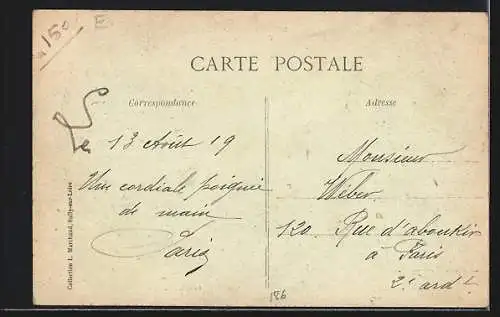 150
E
CARTE POSTALE
Correspondance
Adresse
le 13 Août 19
Une cordiale poignée
de main
Monsieur
Weber
120 Rue d'aboukir
à Paris
2e ardt
Collection L. Marchand, Sully-sur-Loire
186